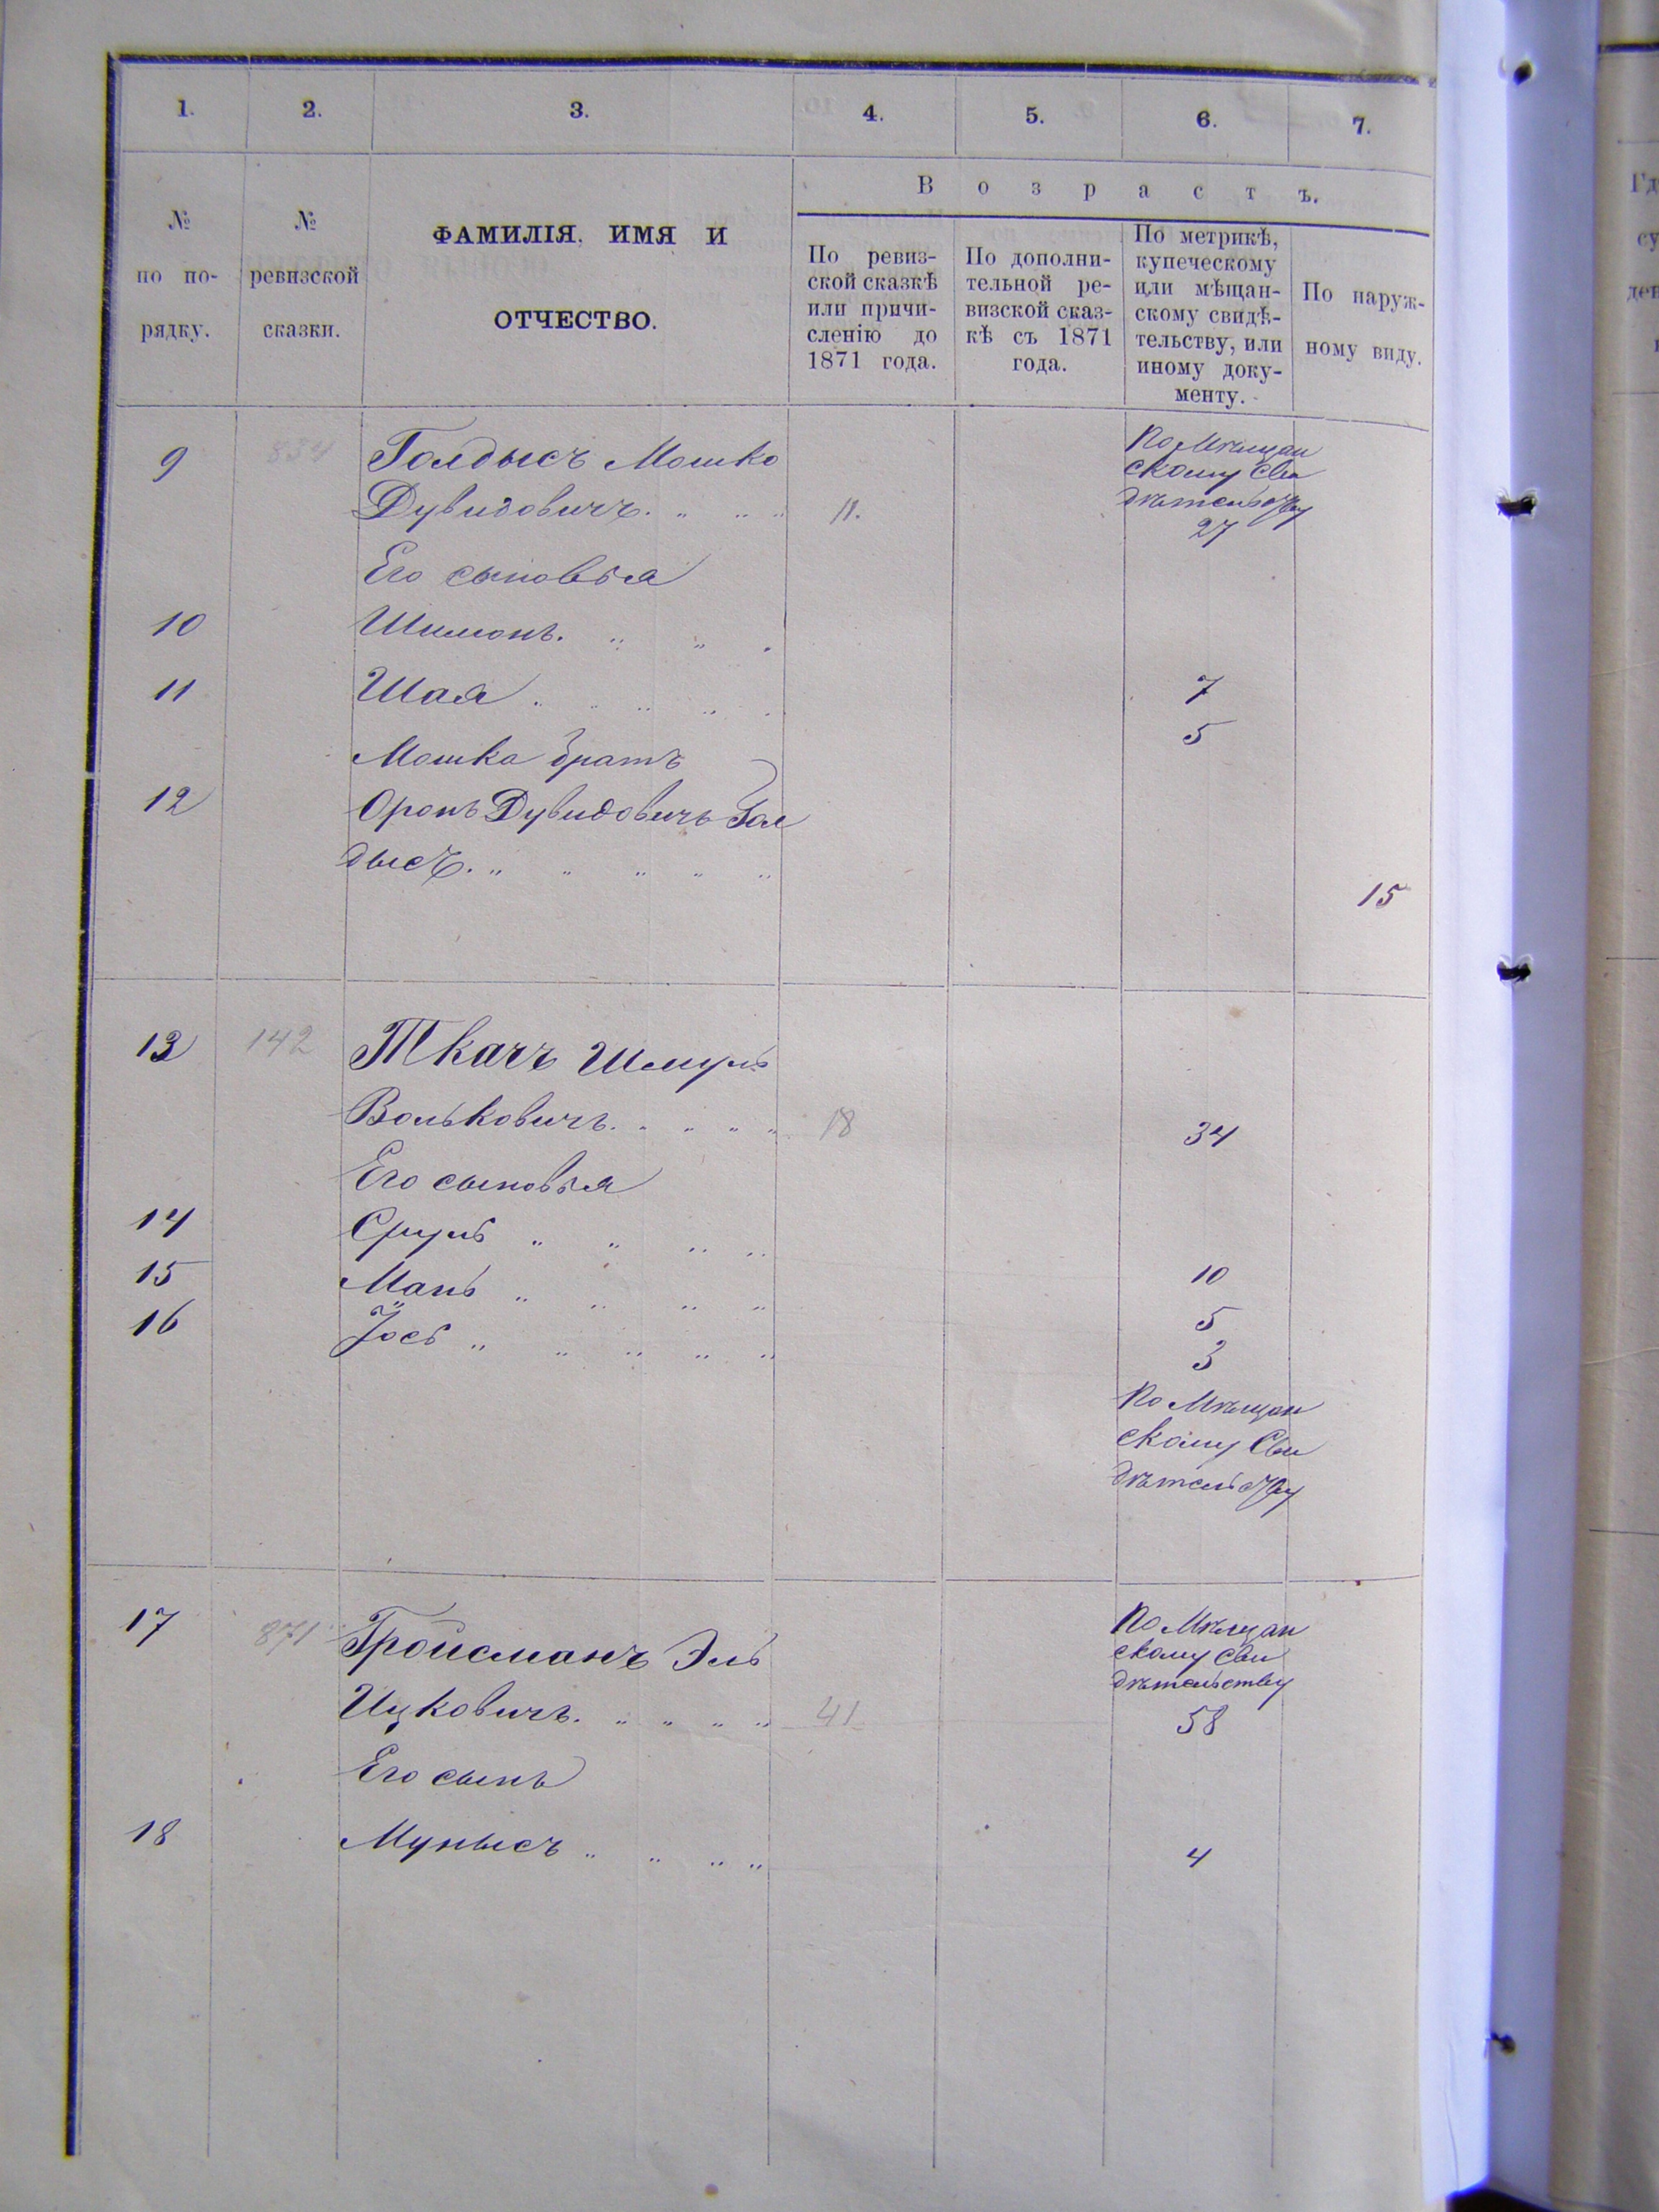 1. 2. 3. 4. 5. 6. 7.
№ по порядку.
№ ревизской сказки.
ФАМИЛІЯ, ИМЯ И
ОТЧЕСТВО.
Возрастъ.
По ревиз-
ской сказкѣ
или причи-
сленію до
1871 года.
По дополни-
тельной ре-
визской сказ-
кѣ съ 1871
года.
По метрикѣ,
купеческому
или мѣщан-
скому свидѣ-
тельству, или
иному доку-
менту.
По наруж-
ному виду.
9 834 Голдысъ Мошко По Мѣщан
скому Сви
Дувидовичъ. 11. дѣтельству
27
Его сыновья
10 Шимонъ.
11 Шая 7
5
Мошка братъ
12 Оронъ Дувидовичъ Гол
дысъ.
15
13 142 Ткачъ Шмуль
Вольковичъ. 18 34
Его сыновья
14 Сруль
15 Мань 10
16 Іось 5
3
По Мѣщан
скому Сви
дѣтельству
17 871 Гройсманъ Эль По Мѣщан
скому Сви
дѣтельству
Ицковичъ. 41 58
Его сынъ
18 Мунысъ 4